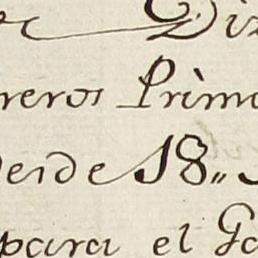 reros Prim
desde 18,,
para el Ga